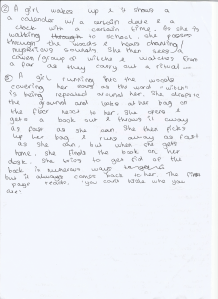 ② A girl wakes up & it shows a
a calendar with a certain date & a
clock with a certain time. As she is
walking through to school, she passes
through the woods & hears chanting/
suspicious sounds. She then sees a
coven/group of witches & watches from
a far as they carry out a ritual
③ A girl running into the woods
covering her ears as the word "witch"
is being repeated around her. She drops to
the ground and looks at her bag on
the floor next to her. She opens &
gets a book out & throws it away
as fast as she can. She then picks
up her bag & runs away as fast
as she can, but when she gets
home, she finds the book on her
desk. She tries to get rid of the
book in numerous ways
but it always comes back to her. The final
page reads, you can't hide who you
are.